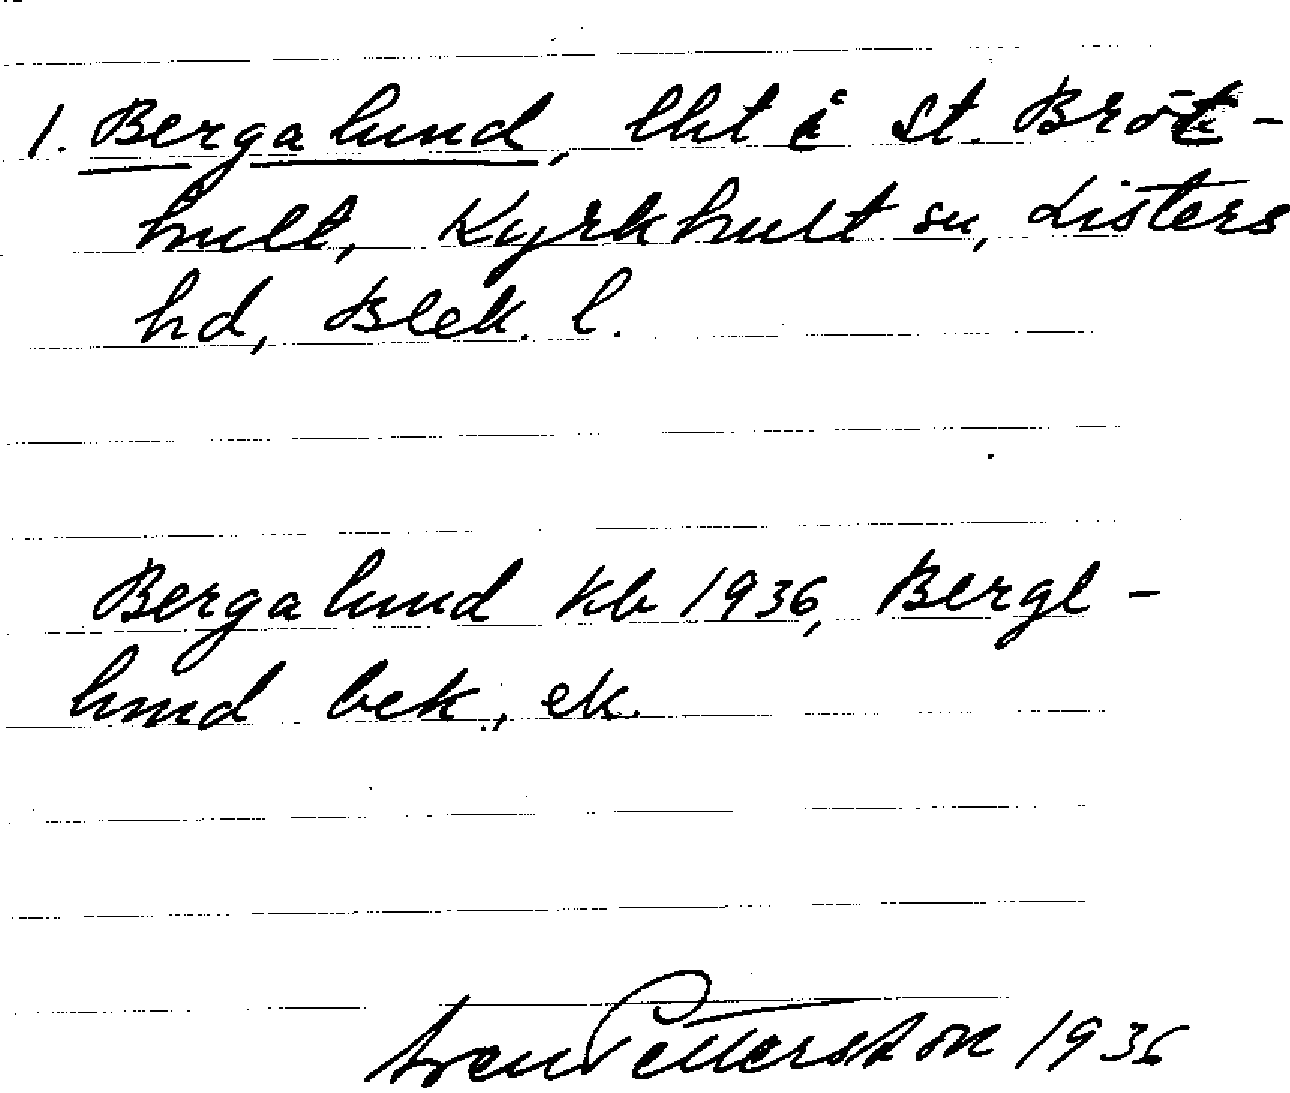 1. Bergalund, lht i St. Brot-
hult, Kyrkhult sn, Listers
hd, Blek. l.
Bergalund kb 1936, Bergl-
lund bek., ek.
Sven Petterson 1936